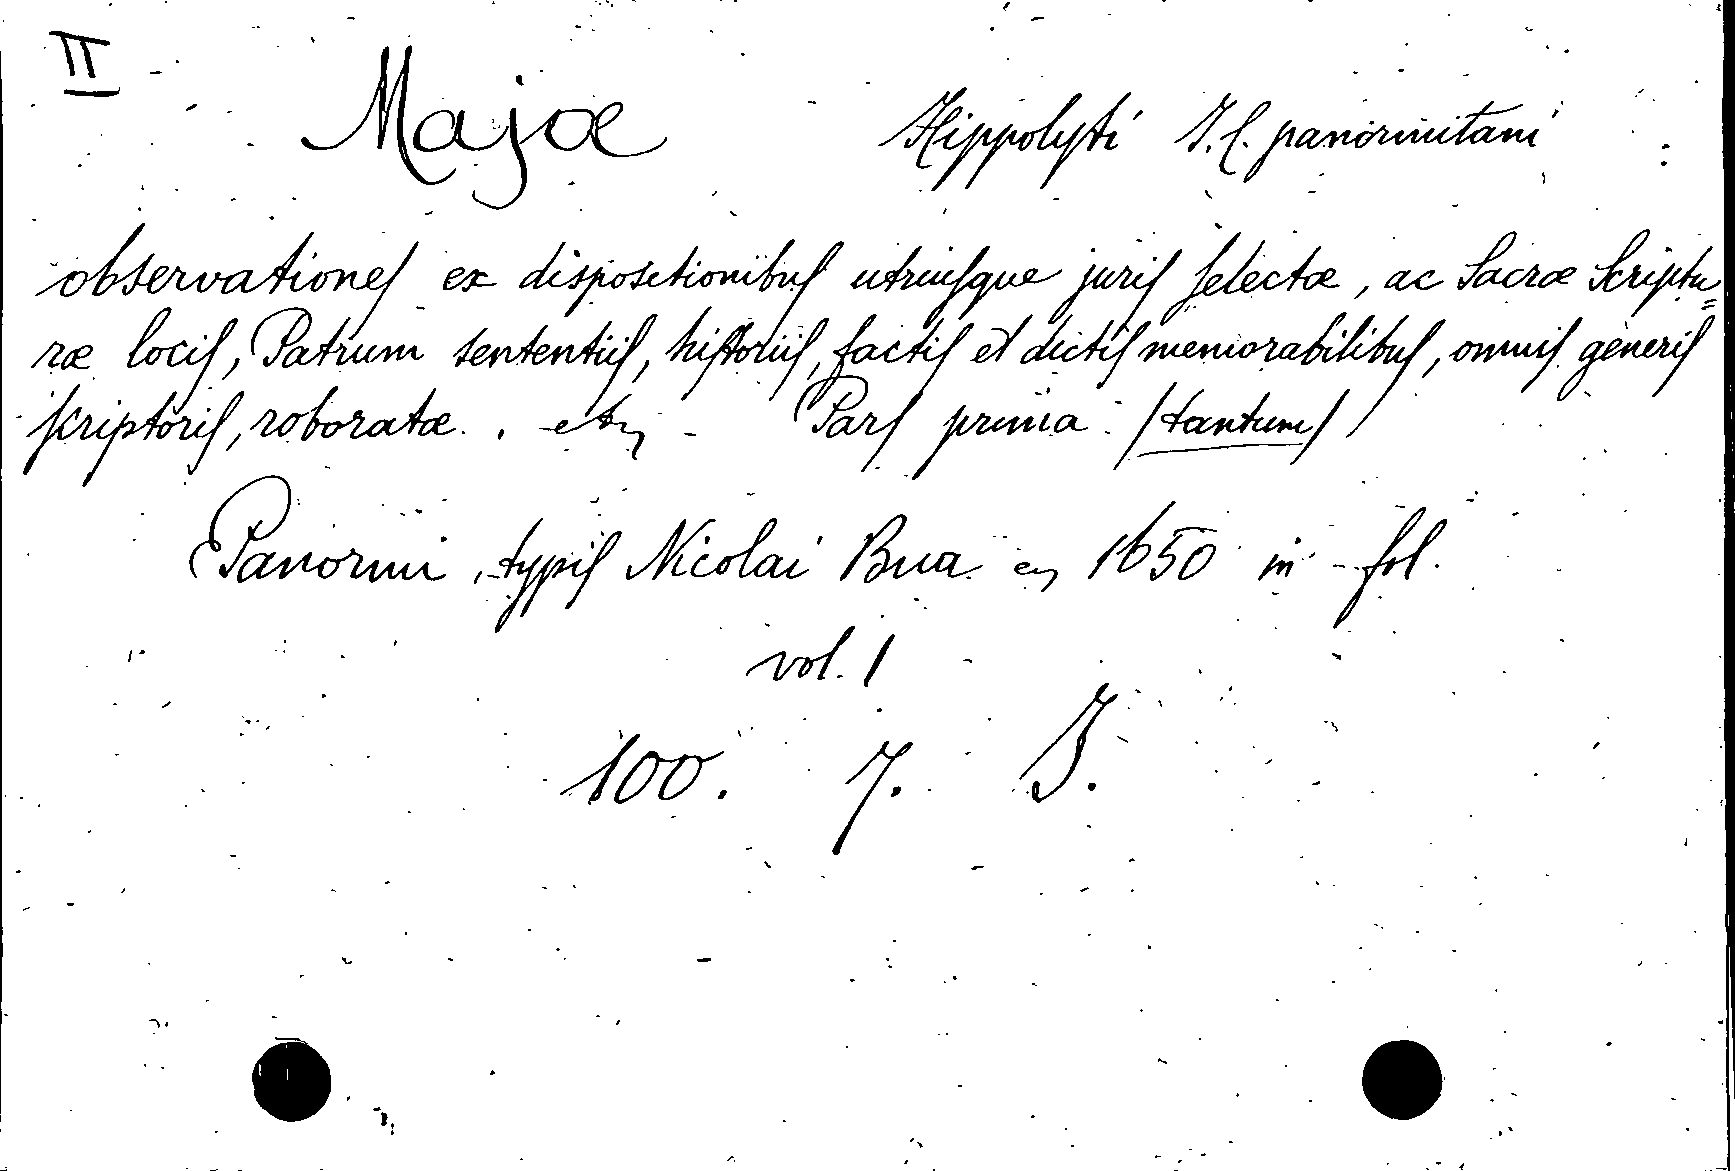 II
Majæ Hippolyti J. C. panormitani
observationes ex dispositionibus utriusque juris selectæ, ac Sacræ Scriptu=
ræ locis, Patrum sententiis, historiis, factis et dictis memorabilibus, omnis generis
scriptoris, roboratæ . etc. Pars prima (tantum)
Panormi, typis Nicolai Bua 1650 in-fol.
vol. 1
100. 7. J.